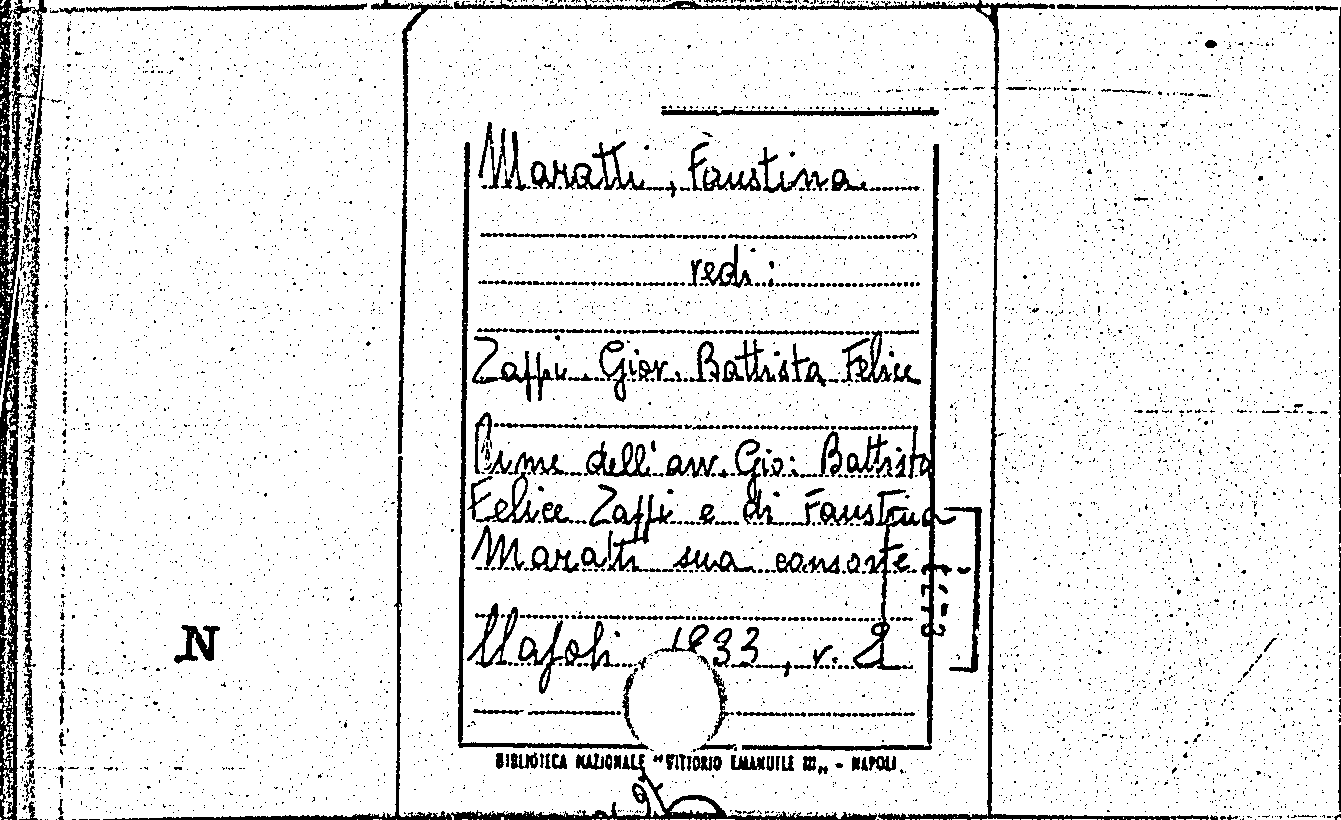 Maratti, Faustina
redi:
Zappi Giov. Battista Felice
Rime dell'avv. Gio: Battista
Felice Zappi e di Faustina
Maratti sua consorte.
N
Napoli, 1833, v. 2
BIBLIOTECA NAZIONALE "VITTORIO EMANUELE III„ - NAPOLI